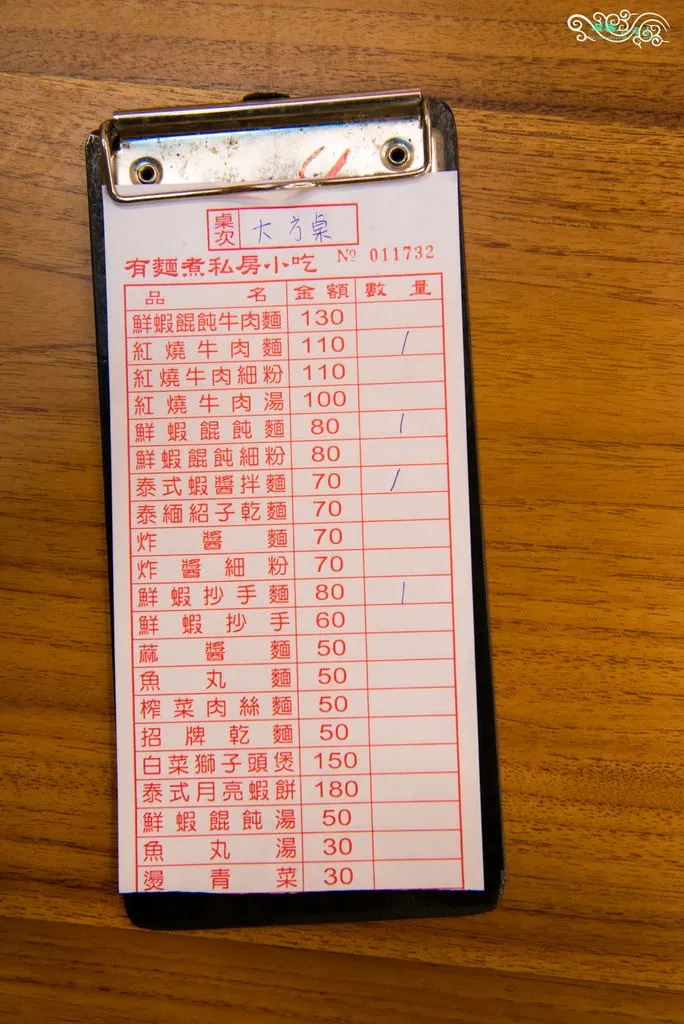 桌次 大方桌
有麵煮私房小吃 № 011732
品名 金額 數量
鮮蝦餛飩牛肉麵 130
紅燒牛肉麵 110 /
紅燒牛肉細粉 110
紅燒牛肉湯 100
鮮蝦餛飩麵 80 /
鮮蝦餛飩細粉 80
泰式蝦醬拌麵 70 /
泰緬紹子乾麵 70
炸醬麵 70
炸醬細粉 70
鮮蝦抄手麵 80 /
鮮蝦抄手 60
蔴醬麵 50
魚丸麵 50
榨菜肉絲麵 50
招牌乾麵 50
白菜獅子頭煲 150
泰式月亮蝦餅 180
鮮蝦餛飩湯 50
魚丸湯 30
燙青菜 30